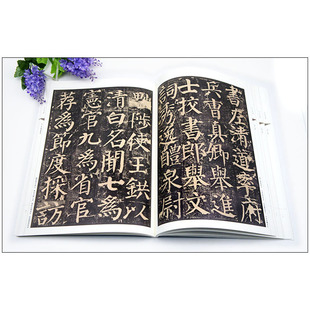 書左清道率府
兵曹真卿舉進
士校書郎舉文
詞秀逸醴泉尉
黜陟使王鉷以
清白名聞七為
憲官九為省官
荐為節度採訪